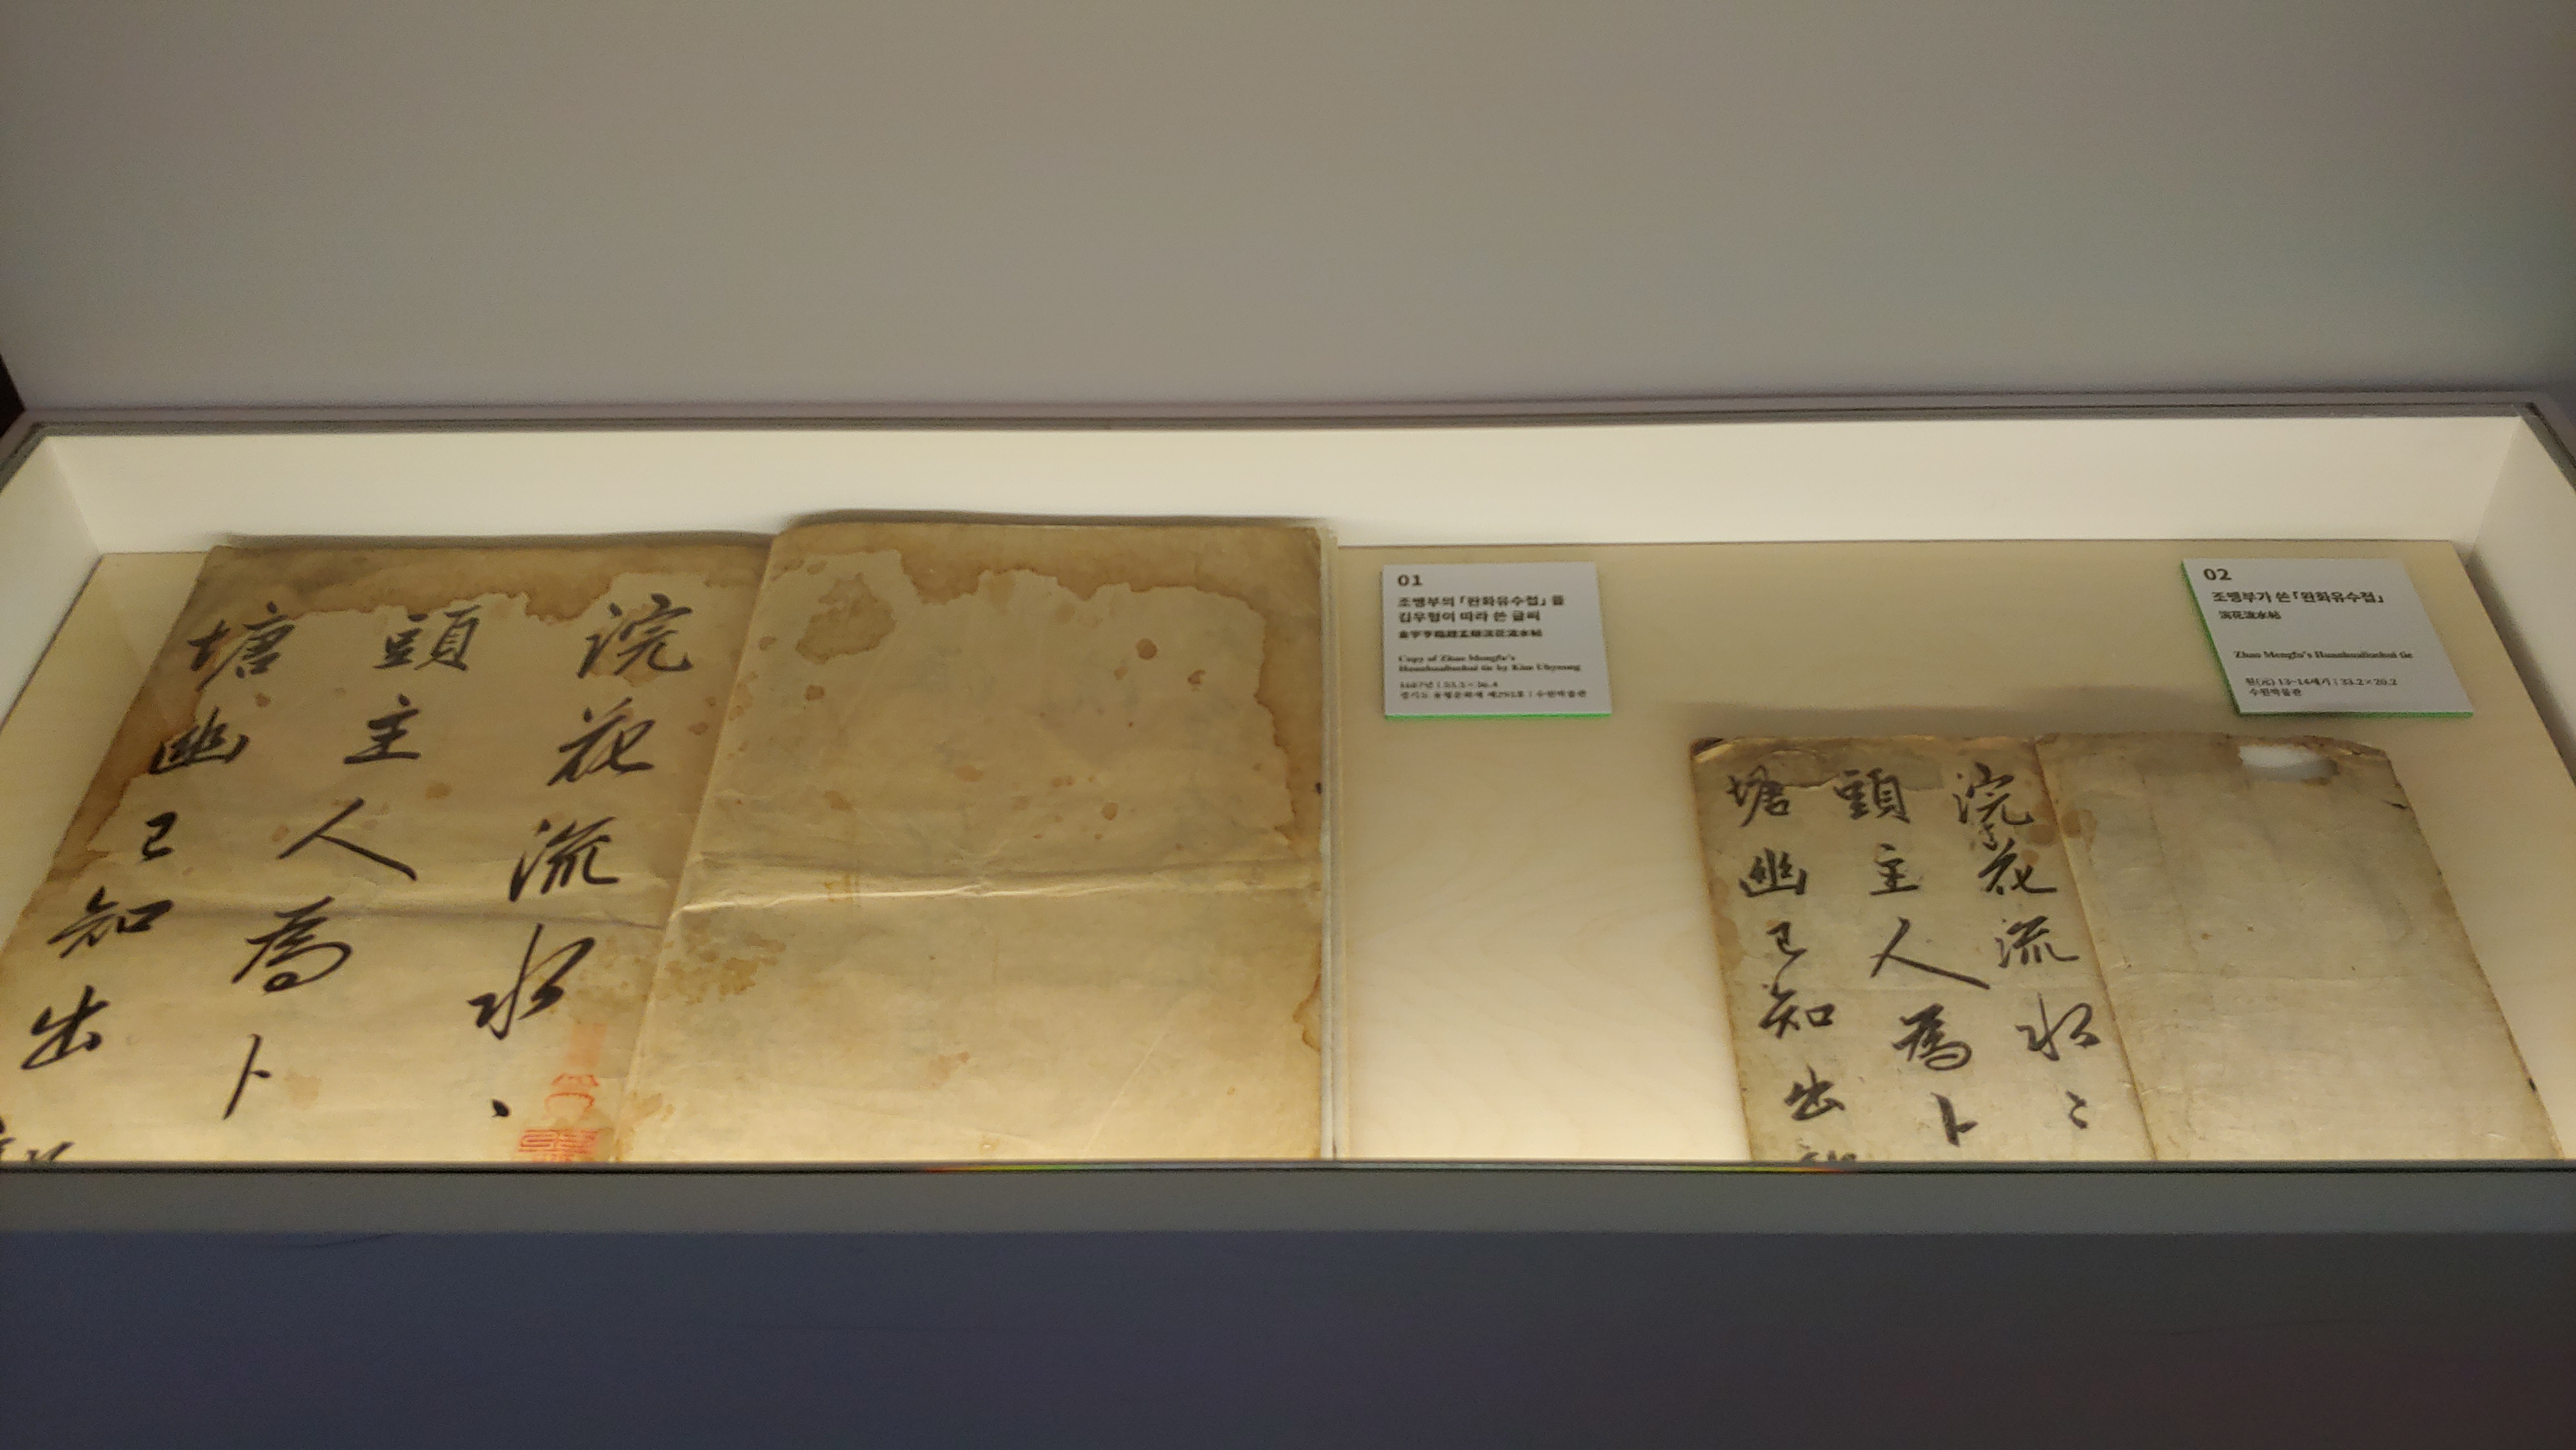 浣花流水
頭主人爲卜
塘幽已知出
01
조맹부의 「완화유수첩」을
김우형이 따라 쓴 글씨
Copy of Zhao Mengfu's
Huanhualiushui tie by Kim Uhyeong
경기도 유형문화재 제293호 | 수원박물관
02
조맹부가 쓴 「완화유수첩」
浣花流水帖
Zhao Mengfu's Huanhualiushui tie
원(元) 13~14세기 | 33.2×20.2
수원박물관
浣花流水〻
頭主人爲卜
塘幽已知出